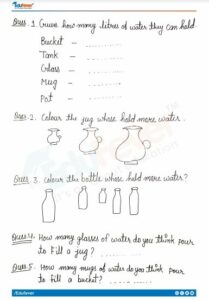 Edufever
Ques. 1 Guess how many litres of water they can hold
Bucket -
Tank -
Glass -
Mug -
Pot -
Ques. 2. Colour the jug whose hold more water.
Ques. 3. Colour the bottle whose hold more water?
Ques 4. How many glasses of water do you think pour
to fill a jug?
Ques 5. How many mugs of water do you think pour
to fill a bucket?
/Edufever